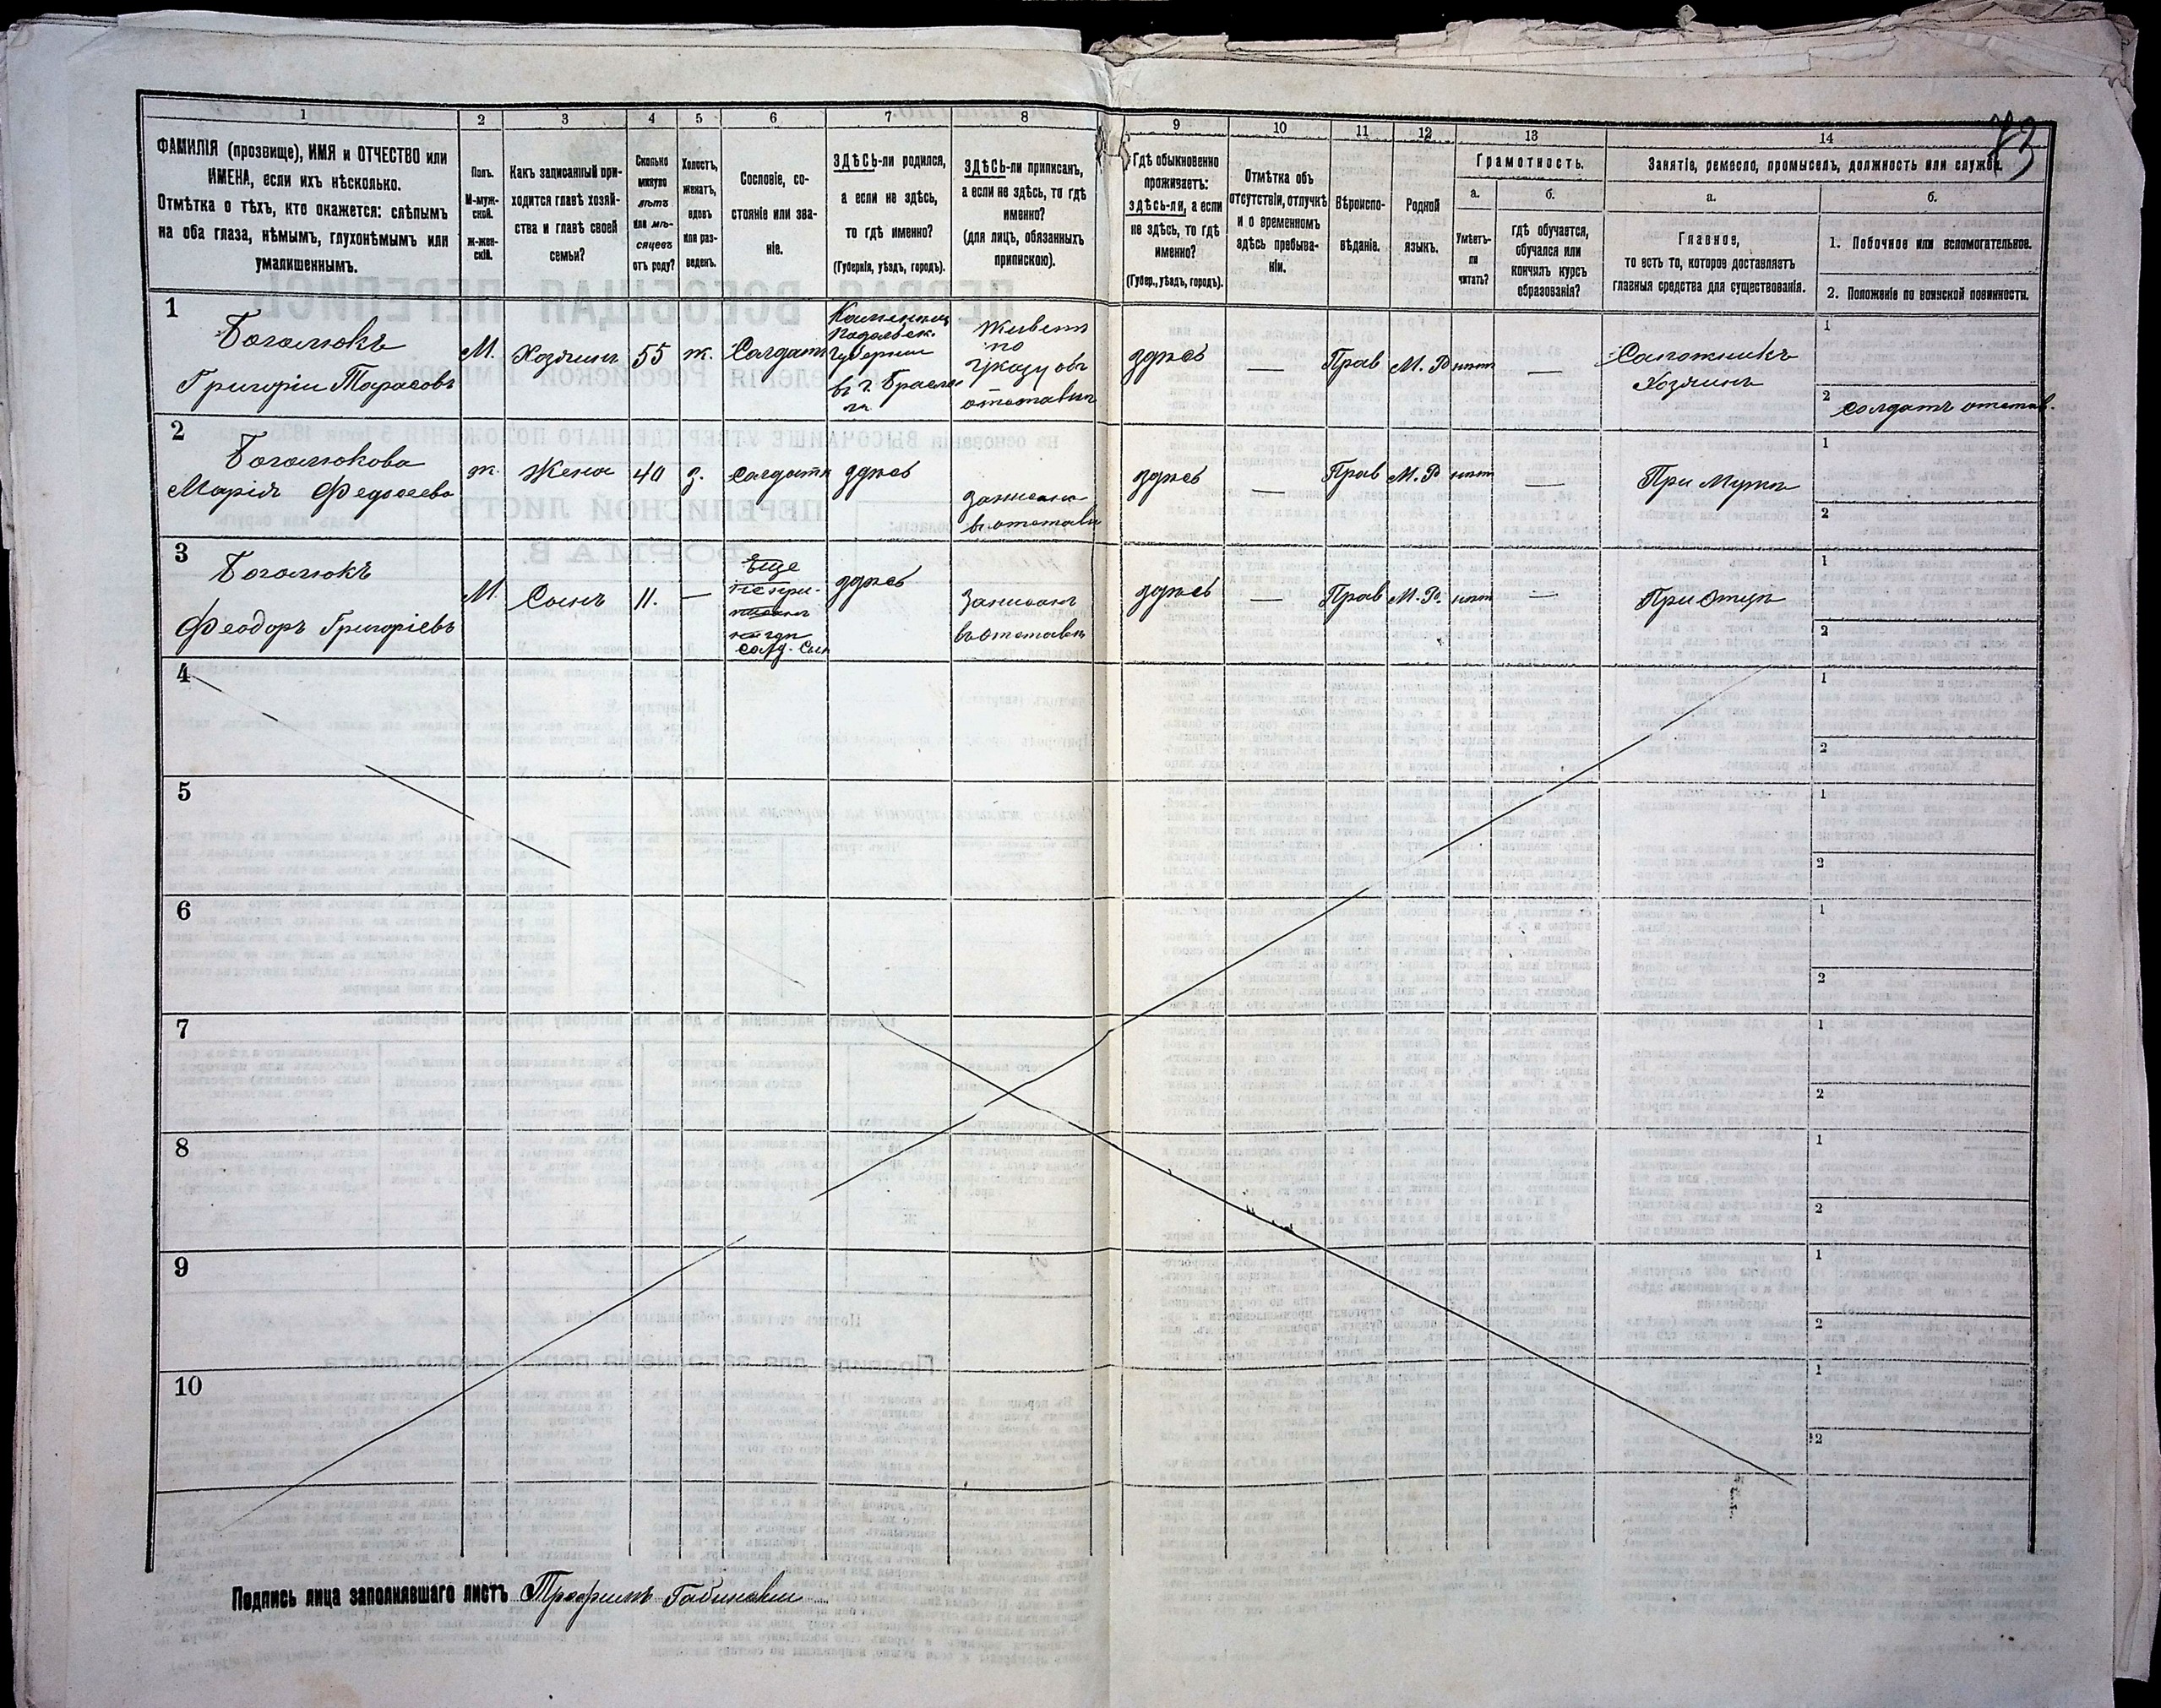 73
1
2
3
4
5
6
7
8
9
10
11
12
13
14
ФАМИЛІЯ (прозвище), ИМЯ и ОТЧЕСТВО или
ИМЕНА, если ихъ нѣсколько.
Отмѣтка о тѣхъ, кто окажется: слѣпымъ
на оба глаза, нѣмымъ, глухонѣмымъ или
умалишеннымъ.
Полъ.
М-муж-
ской.
Ж-жен-
скій.
Какъ записанный при-
ходится главѣ хозяй-
ства и главѣ своей
семьи?
Сколько
минуло
лѣтъ
или мѣ-
сяцевъ
отъ роду?
Холостъ,
женатъ,
вдовъ
или раз-
веденъ.
Сословіе, со-
стояніе или зва-
ніе.
ЗДѢСЬ-ли родился,
а если не здѣсь,
то гдѣ именно?
(Губернія, уѣздъ, городъ).
ЗДѢСЬ-ли приписанъ,
а если не здѣсь, то гдѣ
именно?
(для лицъ, обязанныхъ
припискою).
Гдѣ обыкновенно
проживаетъ:
здѣсь-ли, а если
не здѣсь, то гдѣ
именно?
(Губер., уѣздъ, городъ).
Отмѣтка объ
отсутствіи, отлучкѣ
и о временномъ
здѣсь пребыва-
ніи.
Вѣроиспо-
вѣданіе.
Родной
языкъ.
Грамотность.
а.
Умѣетъ-
ли
читать?
б.
гдѣ обучается,
обучался или
кончилъ курсъ
образованія?
Занятіе, ремесло, промыселъ, должность или служба.
а.
Главное,
то есть то, которое доставляетъ
главныя средства для существованія.
б.
1. Побочное или вспомогательное.
2. Положеніе по воинской повинности.
1
Боголюкъ
Григоріи Тарасовъ
М.
Хозяинъ
55
ж.
Солдатъ
Подольск.
Губернии
Живетъ
по
Указу объ
отставки
здѣсь
—
Прав
М. Р
нѣтъ
—
Сапожникъ
Хозяинъ
1
2
солдатъ отстав.
2
Боголюкова
Марія Федосеева
ж.
Жена
40
з.
солдатк
здѣсь
записана
въ отставки
здѣсь
—
Прав
М. Р
нѣтъ
—
При Мужѣ
1
2
3
Боголюкъ
Феодоръ Григоріевъ
М.
Сынъ
11.
—
Еще
непри-
писанъ
нигдѣ
солд. сын
здѣсь
Записанъ
въ отставкѣ
здѣсь
—
Прав
М. Р.
нѣтъ
—
При Отцѣ
1
2
4
1
2
5
1
2
6
1
2
7
1
2
8
1
2
9
1
2
10
1
2
Подпись лица заполнявшаго листъ Трофимъ